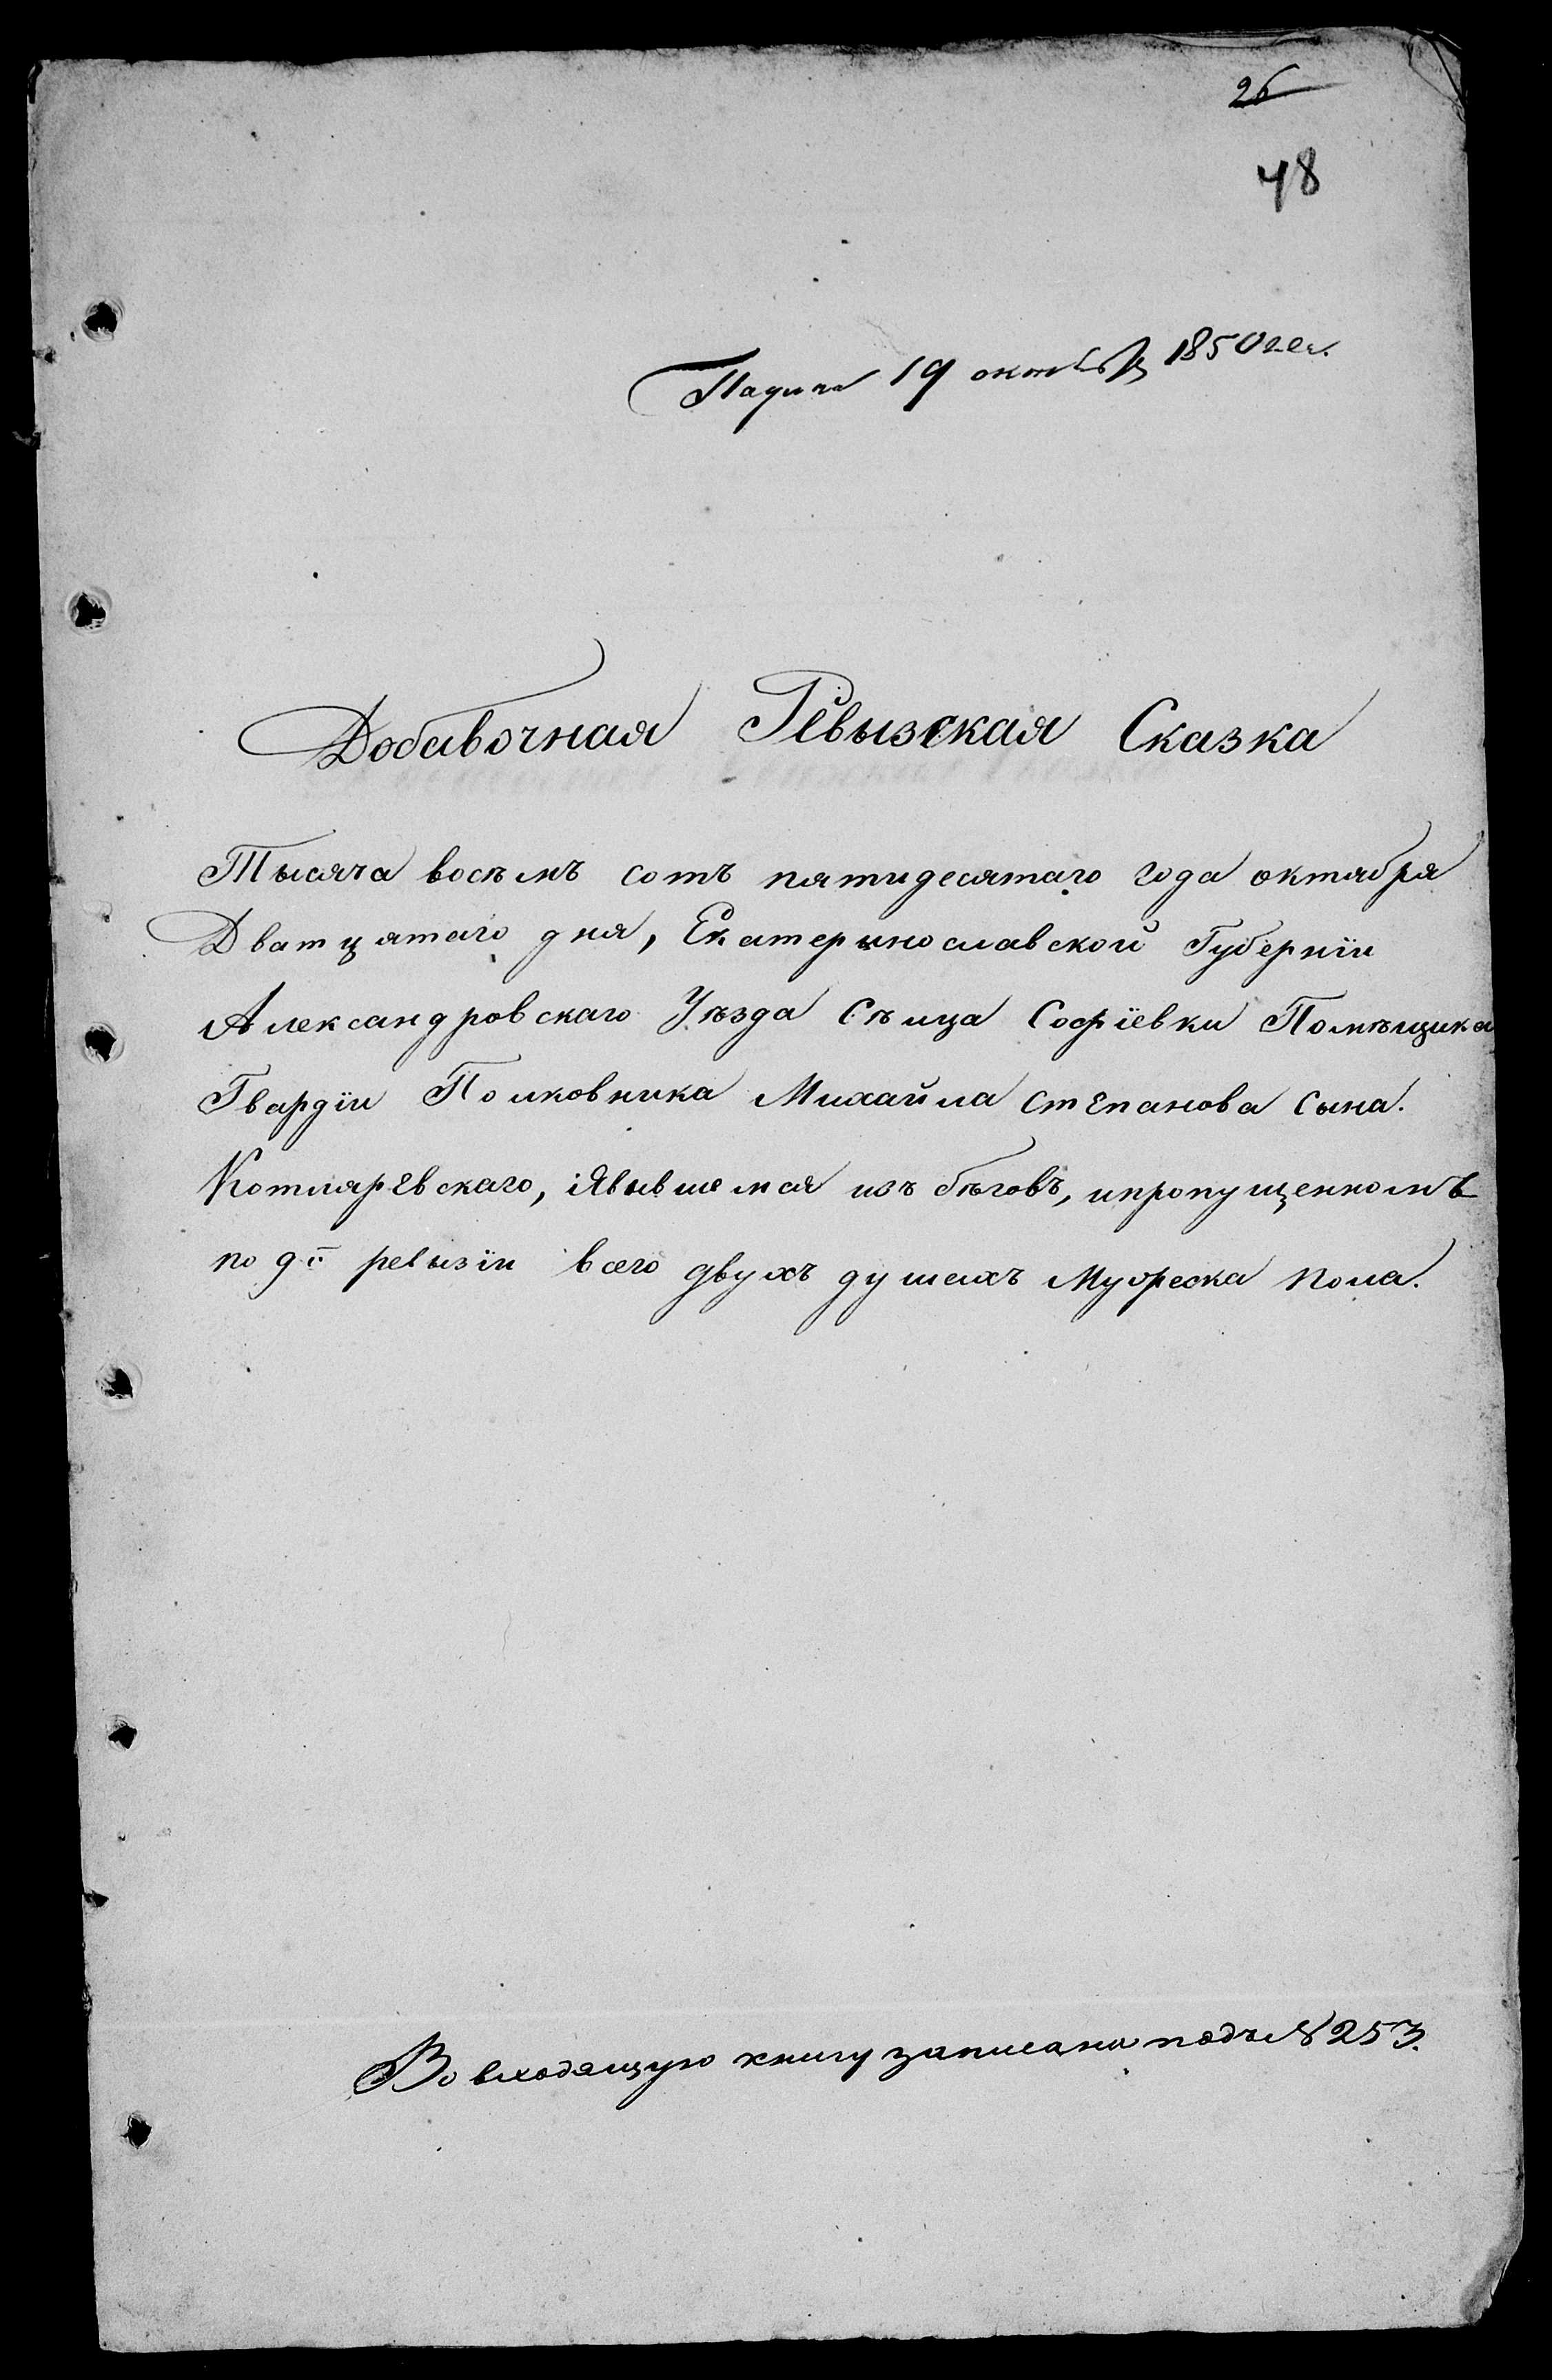 26
48
Подана 19 октября 1850 года.
Добавочная Ревызская Сказка
Тысяча восѣмъ сотъ пятидесятаго года октября
Дватцятаго дня, Екатеринославской Губернїи
Александровскаго Уѣзда Сѣльца Софїевки Помѣщика
Гвардїи Полковника Михайла Степанова Сына.
Котляревскаго, Явывшемся изъ бѣговъ, ипропущенномъ
по 9й ревызїи всего двухъ душахъ Мужеска пола.
Во входящую книгу записана подъ № 253.